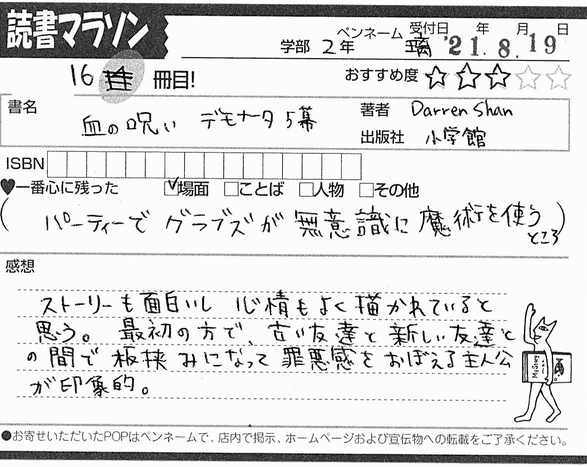 読書マラソン
学部 2年 ペンネーム 璃 受付日 '21年 8月 19日
16 冊目!
おすすめ度 ★★★☆☆
書名 血の呪い デモナータ 5幕
著者 Darren Shan
出版社 小学館
ISBN
♥一番心に残った ☑場面 □ことば □人物 □その他
(パーティーで グラブズが 無意識に 魔術を使うところ)
感想
ストーリーも面白いし 心情もよく描かれていると
思う。最初の方で、古い友達と新しい友達と
の間で板挟みになって罪悪感をおぼえる主人公
が印象的。
●お寄せいただいたPOPはペンネームで、店内で掲示、ホームページおよび宣伝物への転載をご了承ください。